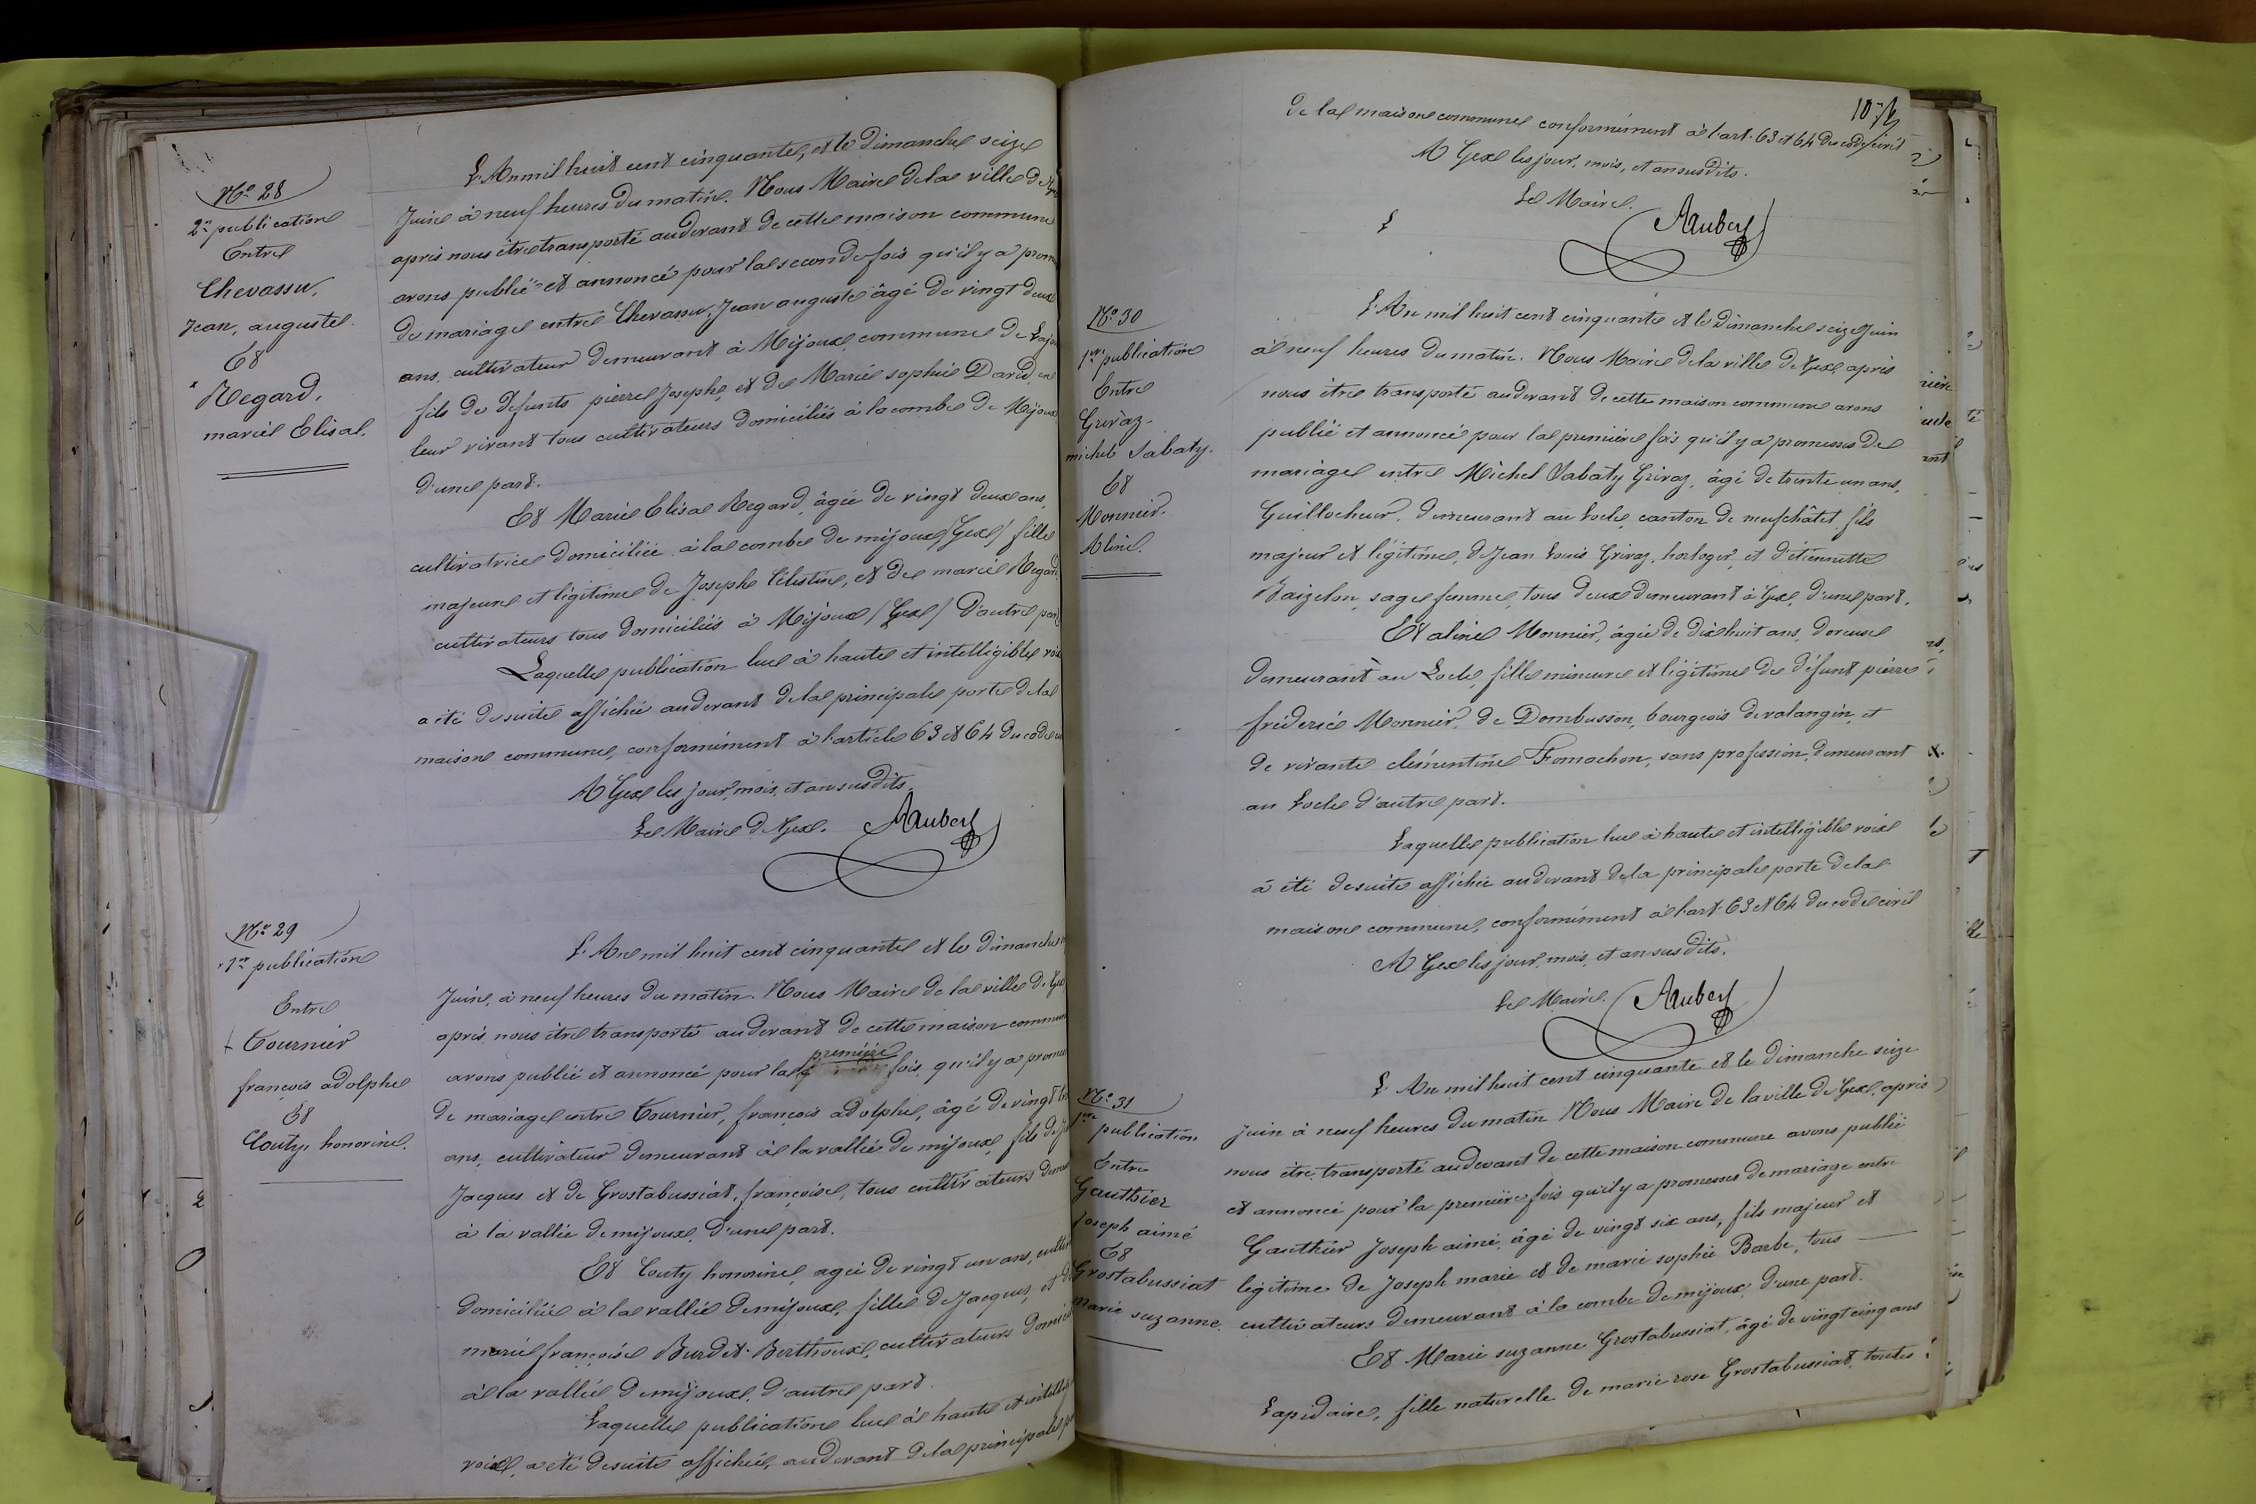 N° 28
2e publication
Entre
Chevassu,
Jean, auguste.
Et
Regard,
marie Elisa.
L'An mil huit cent cinquante, et le Dimanche seize
Juin à neuf heures du matin. Nous Maire de la ville de Gex
après nous être transporté audevant de cette maison commune
avons publié et annoncé pour la seconde fois qu'il y a prom
de mariage entre Chevassu, Jean auguste âgé de vingt deux
ans, cultivateur demeurant à Mijoux commune de Lajou
fils de défunts pierre Joseph, et de Marie sophie David, en
leur vivant tous cultivateurs domiciliés à la combe de Mijoux
d'une part.
Et Marie Elisa Regard, âgée de vingt deux ans,
cultivatrice domiciliée à la combe de mijoux (Gex) fille
majeure et légitime de Joseph Célestin, et de marie Regard,
cultivateurs tous domiciliés à Mijoux (Gex) D'autre part
Laquelle publication lue à haute et intelligible voix
a été desuite affichée audevant de la principale porte de la
maison commune, conformément à l'article 63 et 64 du code
A Gex les jour, mois, et an susdits.
Le Maire de Gex. AAubery
N° 29
1re publication
Entre
Tournier
françois adolphe
Et
Couty, honorine.
L'An mil huit cent cinquante et le dimanche
Juin, à neuf heures du matin. Nous Maire de la ville de Gex
après nous être transporté audevant de cette maison commune
avons publié et annoncé pour la première fois, qu'il y a promes
de mariage entre Tournier, françois adolphe, âgé de vingt
ans, cultivateur demeurant à la vallée de mijoux, fils de
Jacques et de Grostabussiat, françoise, tous cultivateurs demeu
à la vallée de mijoux, d'une part.
Et Couty honorine, agée de vingt un ans,
domiciliée à la vallée de mijoux, fille de Jacques, et de
marie françoise Burdet-Berthoux, cultivateurs domicil
à la vallée de mijoux, d'autre part.
Laquelle publication lue à haute et intellig
voix, a été desuite affichée, audevant de la principale
107
de la maison commune conformément à l'art. 63 et 64 du code civil
A Gex les jour, mois, et an susdits.
Le Maire.
AAubery
N° 30
1re publication
Entre
Grivaz.
michel Sabaty.
Et
Monnier.
Aline.
L'An mil huit cent cinquante et le Dimanche seize Juin
à neuf heures du matin. Nous Maire de la ville de Gex, après
nous être transporté audevant de cette maison commune avons
publié et annoncé pour la première fois qu'il y a promesses de
mariage entre Michel Sabaty Grivaz, âgé de trente un ans,
Guillocheur, demeurant au Locle, canton de neufchâtel, fils
majeur et légitime, de Jean Louis Grivaz, horloger, et d'étiennette
Baizelon, sage femme, tous deux demeurant à Gex, d'une part.
Et aline Monnier, âgée de dix huit ans, doreuse
demeurant au Locle, fille mineure et légitime de défunt pierre
fréderic Monnier, de Dombusson, bourgeois de valangin, et
de vivante clémentine Fornachon, sans profession, demeurant
au Locle d'autre part.
Laquelle publication lue à haute et intelligible voix
a été desuite affichée audevant de la principale porte de la
maison commune, conformément à l'art. 63 et 64 du code civil
A Gex les jour, mois, et an susdits.
Le Maire. AAubery
N° 31
1re publication
Entre
Gauthier
Joseph aimé
Et
Grostabussiat
marie suzanne.
L'An mil huit cent cinquante et le dimanche seize
Juin à neuf heures du matin Nous Maire de la ville de Gex, après
nous être transporté audevant de cette maison commune avons publié
et annoncé pour la première fois qu'il y a promesses de mariage entre
Gauthier Joseph aimé, âgé de vingt six ans, fils majeur et
légitime de Joseph marie et de marie sophie Barbe, tous
cultivateurs demeurant à la combe de mijoux, d'une part.
Et Marie suzanne Grostabussiat, âgé de vingt cinq ans
Lapidaire, fille naturelle de marie rose Grostabussiat, toutes